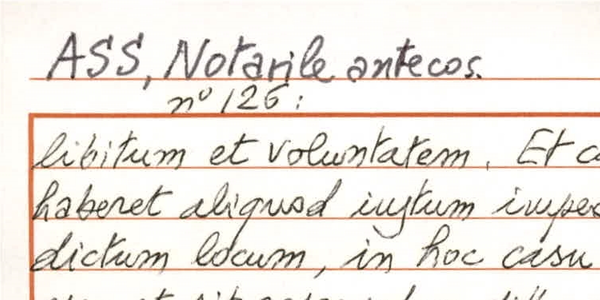 ASS, Notarile antecos.
nº 126:
libitum et voluntatem. Et
haberet aliquod iustum
dictum locum, in hoc casu